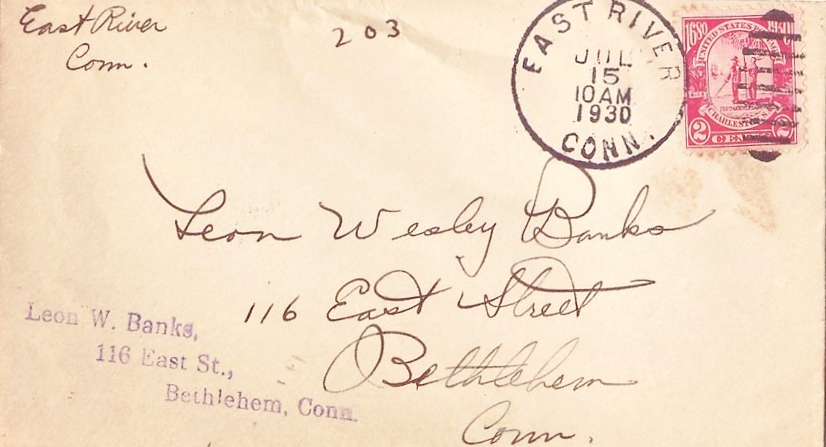 East River
Conn.
203
EAST RIVER
JUL
15
10AM
1930
CONN.
1680 1930
UNITED STATES POSTAGE
CHARLESTON
2 CENTS 2
Leon Wesley Banks
116 East Street
Bethlehem
Conn.
Leon W. Banks,
116 East St.,
Bethlehem, Conn.